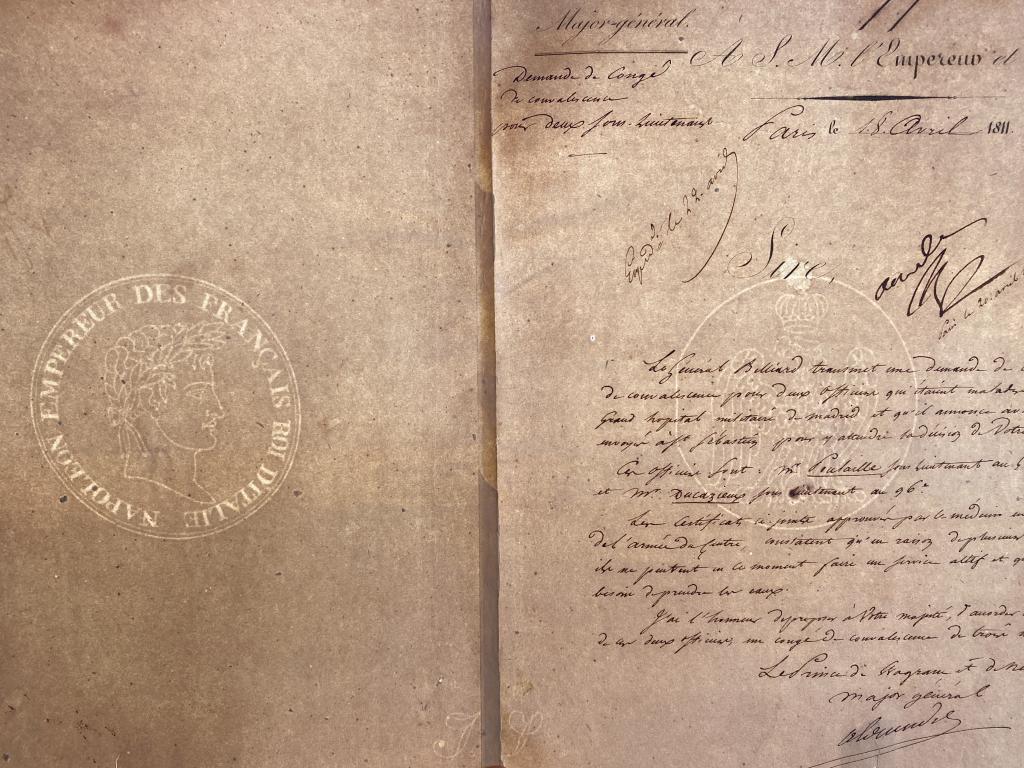 NAPOLEON EMPEREUR DES FRANÇAIS ROI D'ITALIE
Major-général.
A S. M. l'Empereur et
Demande de Congé
de convalescence
pour deux Sous-Lieutenants
Paris le 18 Avril 1811.
Expédié le 22 avril
Sire,
Paris le 20 avril
Le Général Belliard transmet une demande de
de convalescence pour deux officiers qui étaient malades
Grand hopital militaire de Madrid et qu'il annonce
envoyer à St Sébastien pour y attendre la décision de Votre
Ces officiers sont : Mr. Poulaille sous lieutenant au
et Mr. Ducazieux sous lieutenant au 96e
Les Certificats ci joints approuvés par le médecin en
de l'armée du Centre constatent qu'en raison de plusieurs
ils ne peuvent en ce moment faire un service actif et
besoin de prendre les eaux.
J'ai l'honneur de proposer à Votre majesté, d'accorder
de ces deux officiers, un congé de convalescence de trois
Le Prince de Wagram et de
major général
Alexandre